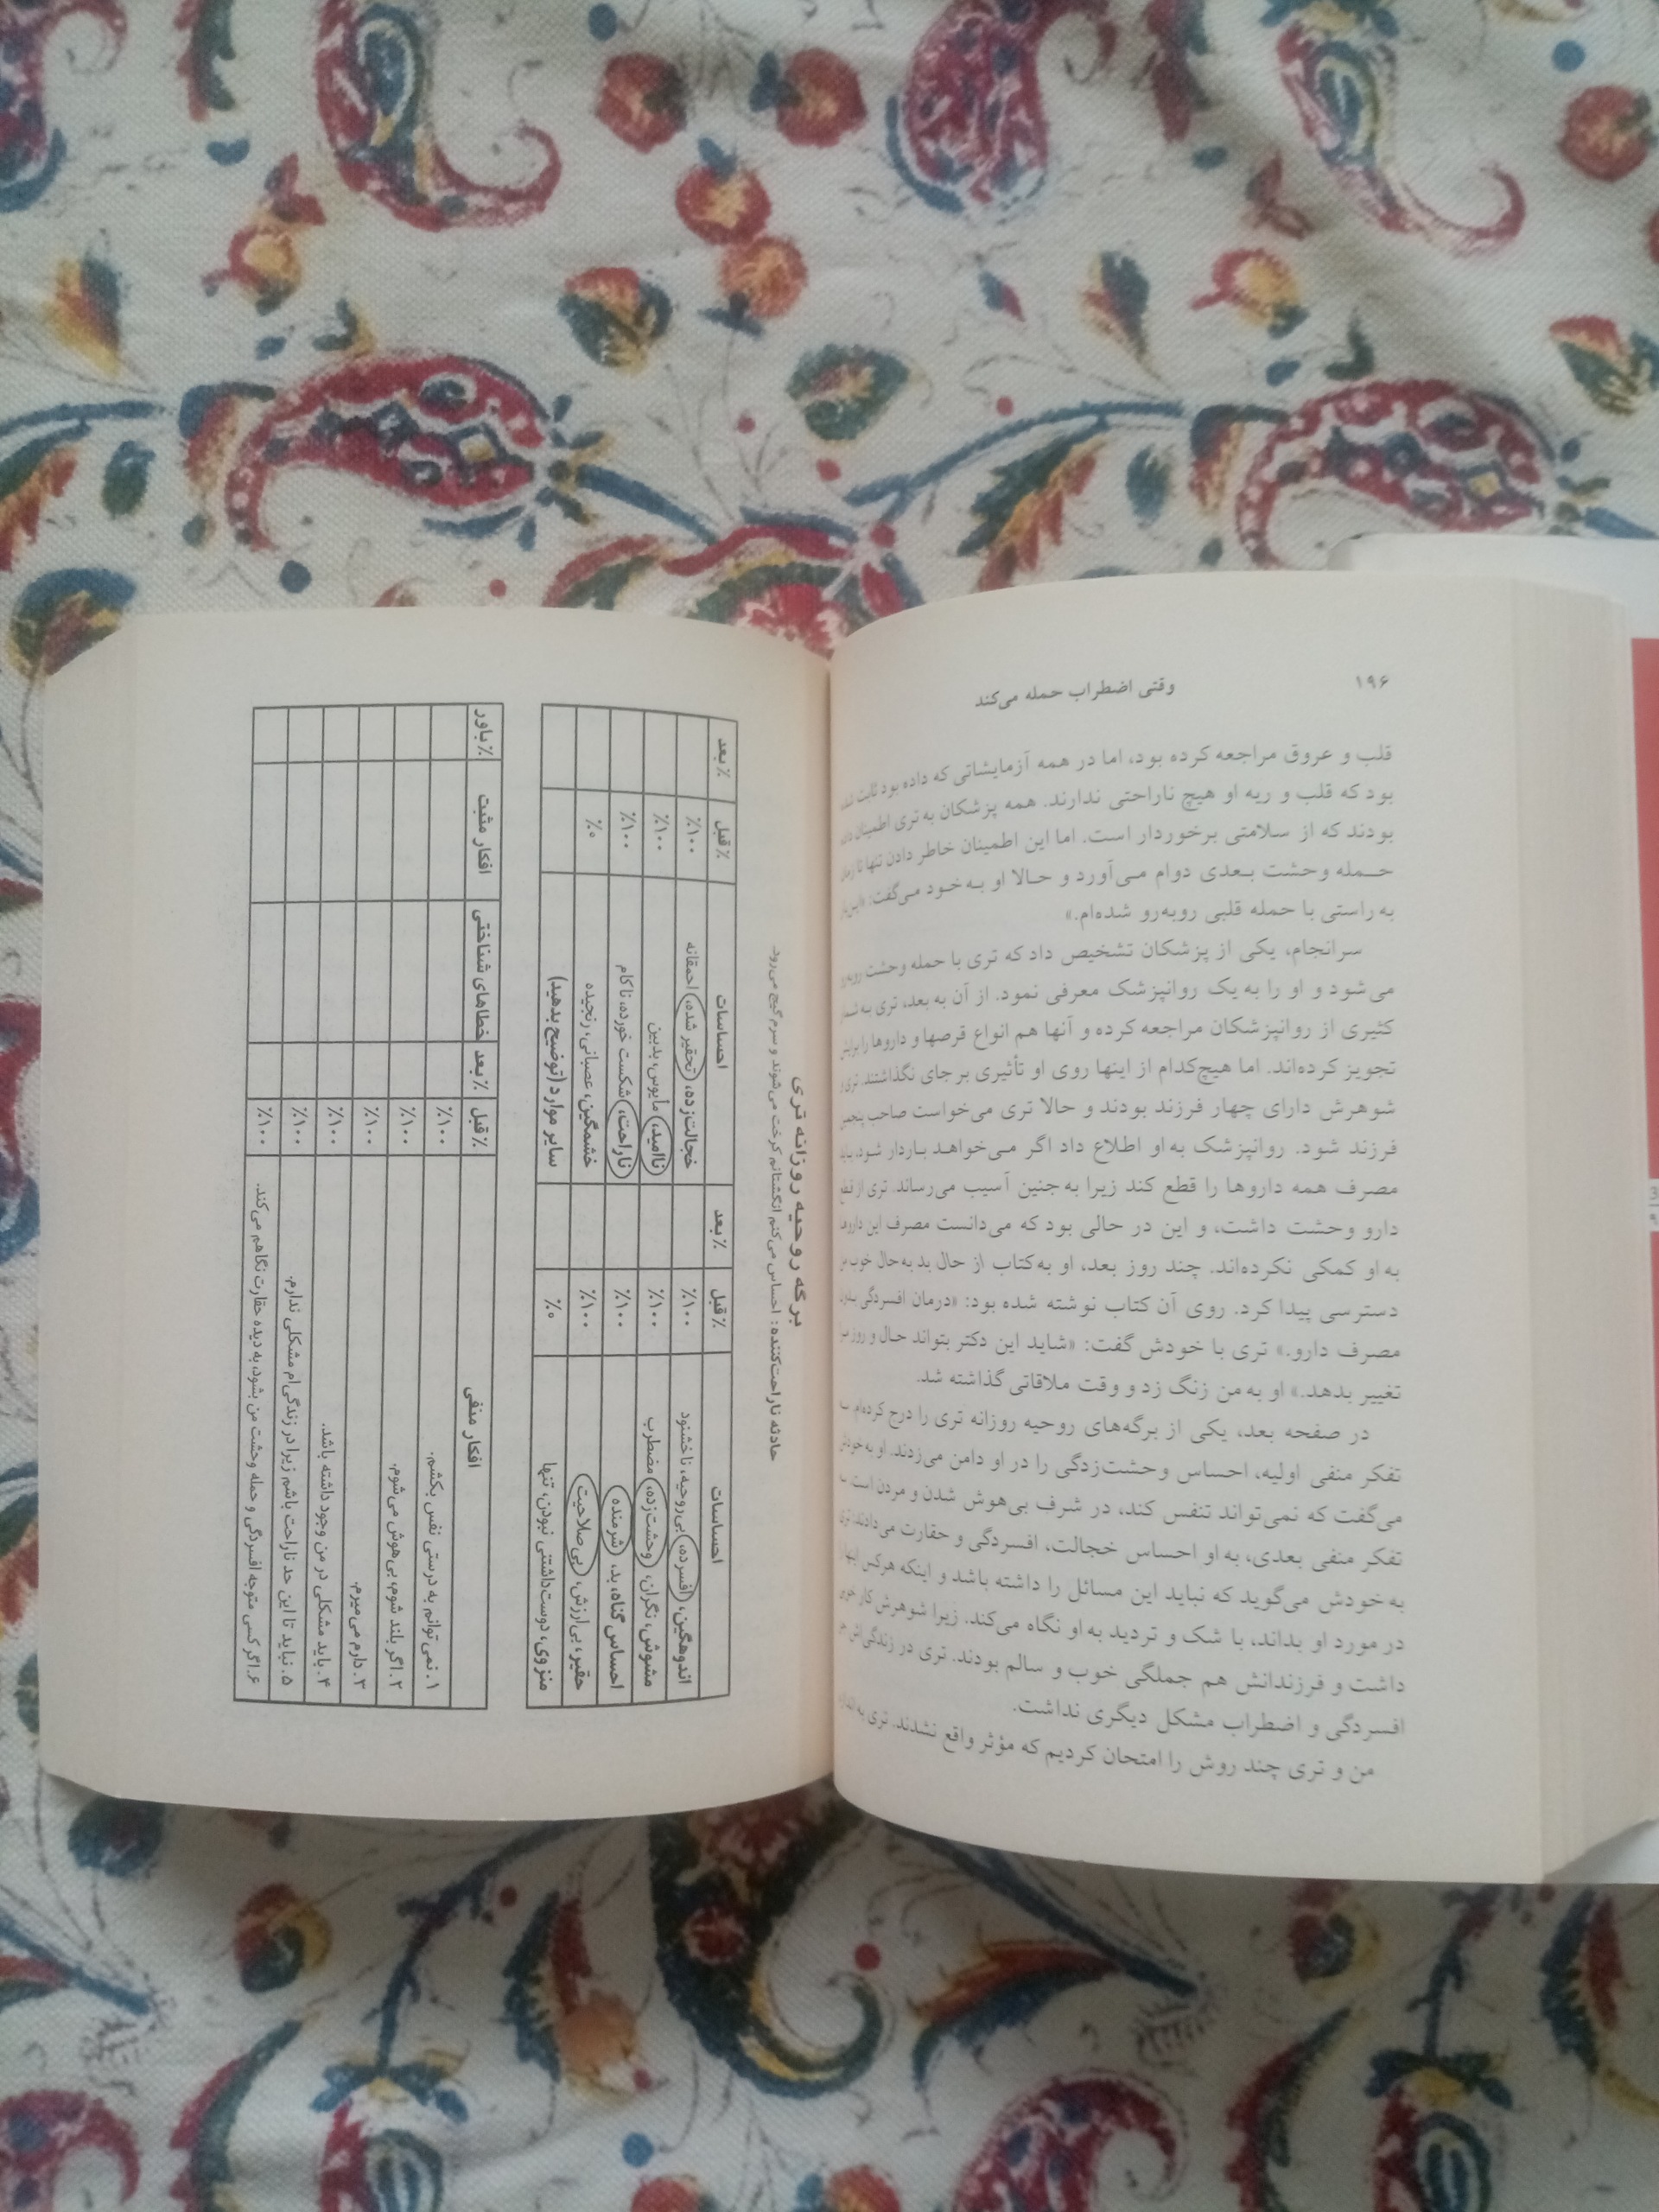 ۱۹۶
وقتی اضطراب حمله می‌کند
قلب و عروق مراجعه کرده بود، اما در همه آزمایشاتی که داده بود ثابت شده
بود که قلب و ریه او هیچ ناراحتی ندارند. همه پزشکان به تری اطمینان داده
بودند که از سلامتی برخوردار است. اما این اطمینان خاطر دادن تنها تا زمان
حمله وحشت بعدی دوام می‌آورد و حالا او به خود می‌گفت: «این‌بار
به راستی با حمله قلبی روبه‌رو شده‌ام.»
سرانجام، یکی از پزشکان تشخیص داد که تری با حمله وحشت روبه‌رو
می‌شود و او را به یک روانپزشک معرفی نمود. از آن به بعد، تری به
کثیری از روانپزشکان مراجعه کرده و آنها هم انواع قرصها و داروها را برایش
تجویز کرده‌اند. اما هیچ‌کدام از اینها روی او تأثیری بر جای نگذاشتند. تری و
شوهرش دارای چهار فرزند بودند و حالا تری می‌خواست صاحب پنجمین
فرزند شود. روانپزشک به او اطلاع داد اگر می‌خواهد باردار شود، باید
مصرف همه داروها را قطع کند زیرا به جنین آسیب می‌رساند. تری از قطع
دارو وحشت داشت، و این در حالی بود که می‌دانست مصرف این داروها
به او کمکی نکرده‌اند. چند روز بعد، او به کتاب از حال بد به حال خوب من
دسترسی پیدا کرد. روی آن کتاب نوشته شده بود: «درمان افسردگی بدون
مصرف دارو.» تری با خودش گفت: «شاید این دکتر بتواند حال و روز مرا
تغییر بدهد.» او به من زنگ زد و وقت ملاقاتی گذاشته شد.
در صفحه بعد، یکی از برگه‌های روحیه روزانه تری را درج کرده‌ام. سه
تفکر منفی اولیه، احساس وحشت‌زدگی را در او دامن می‌زدند. او به خودش
می‌گفت که نمی‌تواند تنفس کند، در شرف بی‌هوش شدن و مردن است. سه
تفکر منفی بعدی، به او احساس خجالت، افسردگی و حقارت می‌دادند. تری
به خودش می‌گوید که نباید این مسائل را داشته باشد و اینکه هرکس اینها را
در مورد او بداند، با شک و تردید به او نگاه می‌کند. زیرا شوهرش کار خوبی
داشت و فرزندانش هم جملگی خوب و سالم بودند. تری در زندگی‌اش جز
افسردگی و اضطراب مشکل دیگری نداشت.
من و تری چند روش را امتحان کردیم که مؤثر واقع نشدند. تری به اندازه
برگه روحیه روزانه تری
حادثه ناراحت‌کننده: احساس می‌کنم انگشتانم کرخت می‌شوند و سرم گیج می‌رود.
احساسات ٪ قبل ٪ بعد احساسات ٪ قبل ٪ بعد
اندوهگین، افسرده، بی‌روحیه، ناخشنود ٪۱۰۰ خجالت‌زده، تحقیر شده، احمقانه ٪۱۰۰
مشوش، نگران، وحشت‌زده، مضطرب ٪۱۰۰ ناامید، مأیوس، بدبین ٪۱۰۰
احساس گناه، بد، شرمنده ٪۱۰۰ ناراحت، شکست خورده، ناکام ٪۱۰۰
حقیر، بی‌ارزش، بی‌صلاحیت ٪۱۰۰ خشمگین، عصبانی، رنجیده ٪۰
منزوی، دوست‌داشتنی نبودن، تنها ٪۰ سایر موارد (توضیح بدهید)
افکار منفی ٪ قبل ٪ بعد خطاهای شناختی افکار مثبت ٪ باور
۱. نمی‌توانم به درستی نفس بکشم. ٪۱۰۰
۲. اگر بلند شوم، بی‌هوش می‌شوم. ٪۱۰۰
۳. دارم می‌میرم. ٪۱۰۰
۴. باید مشکلی در من وجود داشته باشد. ٪۱۰۰
۵. نباید تا این حد ناراحت باشم زیرا در زندگی‌ام مشکلی ندارم. ٪۱۰۰
۶. اگر کسی متوجه افسردگی و حمله وحشت من بشود، به دیده حقارت نگاهم می‌کند. ٪۱۰۰